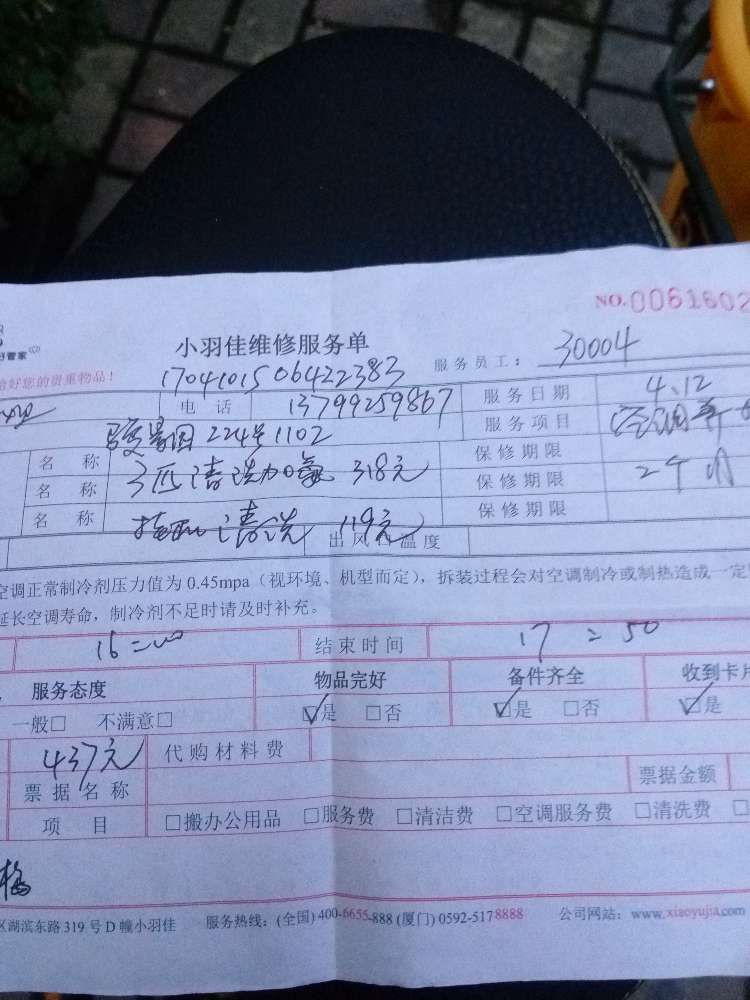 NO.0061602
小羽佳维修服务单
好管家
服务员工： 30004
给好您的贵重物品！
17041015 06422383
电 话 13799259867 服务日期 4.12
景园 224号1102 服务项目 空调
名 称 3匹清洗加氟 318元 保修期限
名 称 保修期限 2个月
名 称 清洗 119元 保修期限
出风口温度
空调正常制冷剂压力值为 0.45mpa（视环境、机型而定），拆装过程会对空调制冷或制热造成一定
延长空调寿命，制冷剂不足时请及时补充。
16=00 结束时间 17=50
服务态度 物品完好 备件齐全 收到卡片
一般□ 不满意□ ☑是 □否 ☑是 □否 ☑是
437元 代购材料费
票据名称 票据金额
项 目 □搬办公用品 □服务费 □清洁费 □空调服务费 □清洗费 □
梅
区湖滨东路 319 号 D 幢小羽佳 服务热线：(全国) 400-6655-888 (厦门) 0592-5178888 公司网站：www.xiaoyujia.com